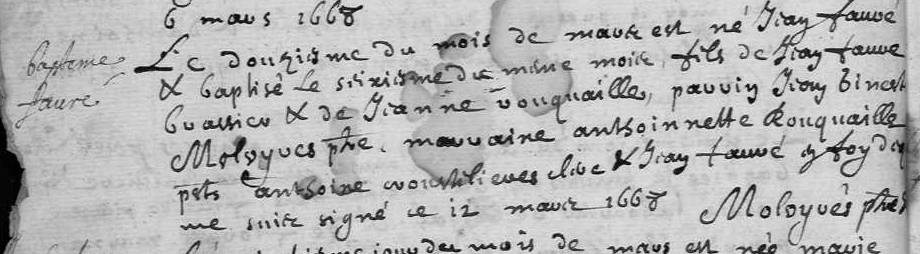 6 mars 1668
baptesme
faure
Le douziesme du mois de mars est né Jean fauré
& baptisé Le seiziesme du mesme mois, fils de Jean faure
brassier & de Jeanne Rouquaille, parrin Jean
Moloyves pbre, marraine anthoinette Rouquaille
pnts anthoine clerc & Jean fauré en foy de quoy
me suis signé ce 12 mars 1668 Moloyvés pbre
mois de mars est née marie